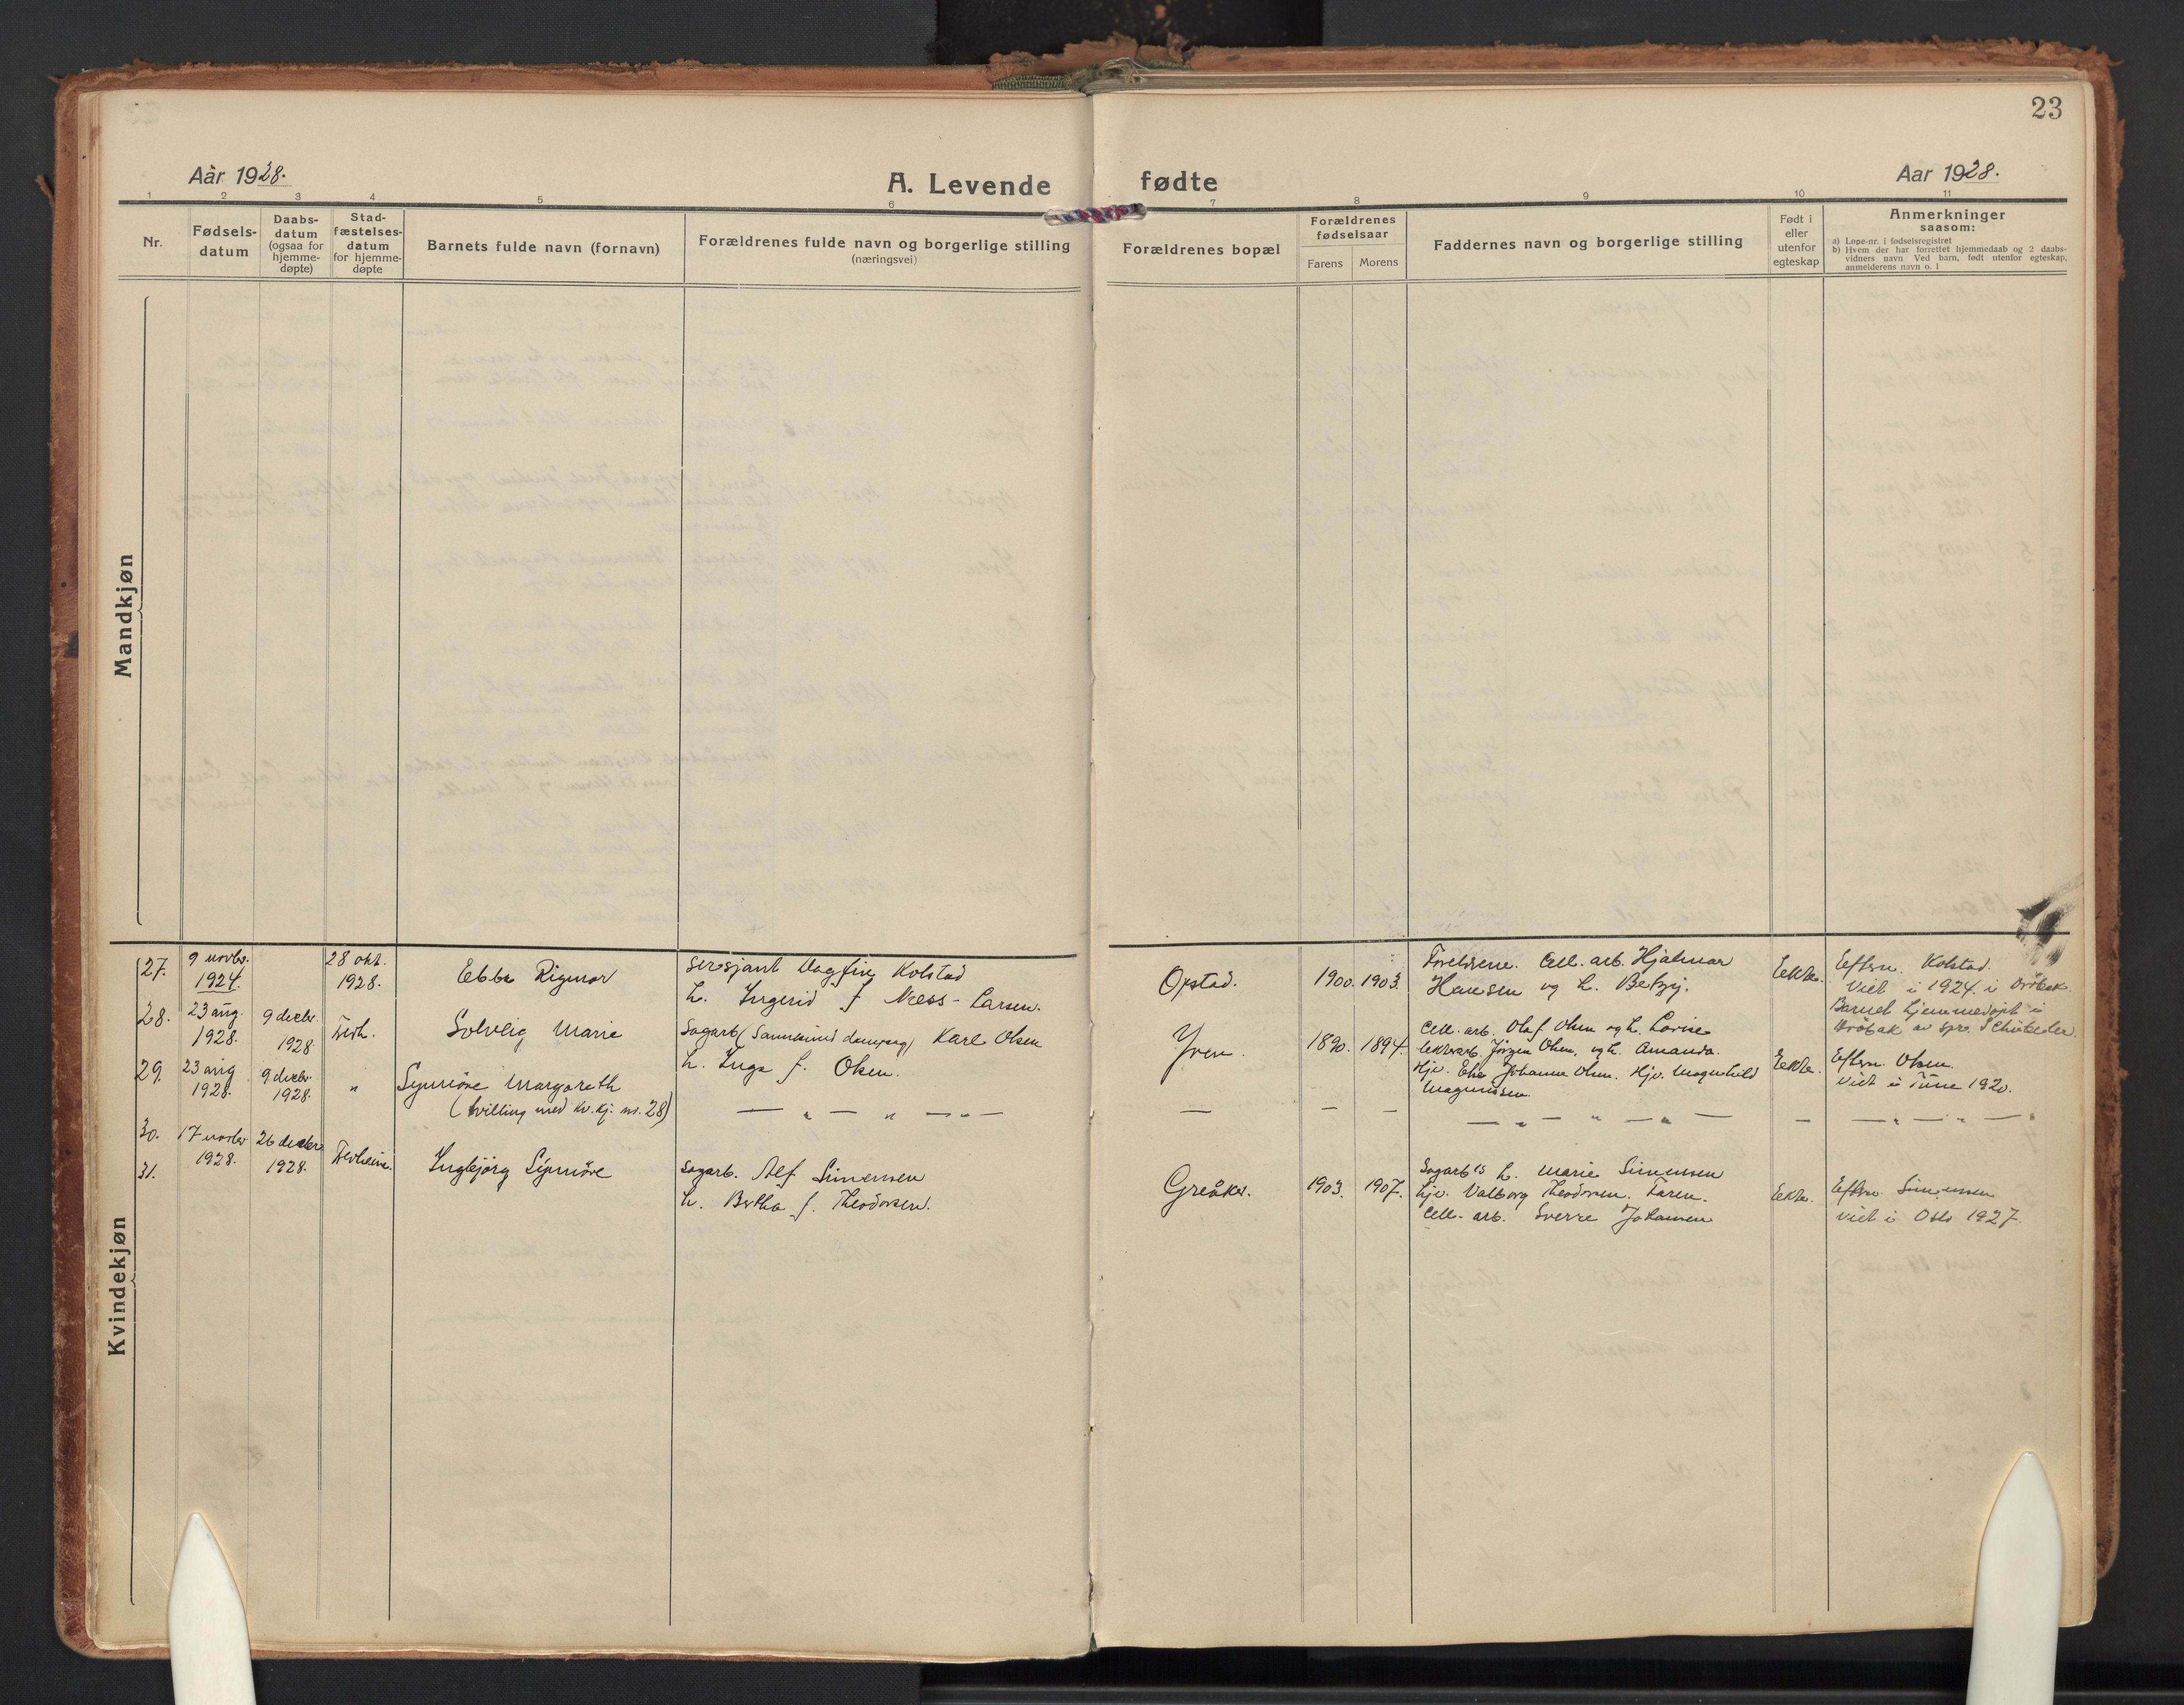 23
Aar 1928.
A. Levende fødte
Aar 1928.
1 2 3 4 5 6 7 8 9 10 11
Nr.
Fødsels-
datum
Daabs-
datum
(ogsaa for
hjemme-
døpte)
Stad-
fæstelses-
datum
for hjemme-
døpte
Barnets fulde navn (fornavn)
Forældrenes fulde navn og borgerlige stilling
(næringsvei)
Forældrenes bopæl
Forældrenes
fødselsaar
Farens Morens
Faddernes navn og borgerlige stilling
Født i
eller
utenfor
egteskap
Anmerkninger
saasom:
a) Løpe-nr. i fødselsregistret
b) Hvem der har forrettet hjemmedaab og 2 daabs-
vidners navn Ved barn, født utenfor egteskap,
anmelderens navn o. l
Mandkjøn
Kvindekjøn
27.
9 novbr.
1924.
28 okt.
1928.
Ebba Rigmor
Sersjant Dagfin Kolstad
h. Ingerid f Næss-Larsen.
Opstad.
1900. 1903.
Foreldrene. Cell. arb. Hjalmar
Hansen og h. Betzy.
Ekte.
Eftern. Kolstad.
Viet i 1924. i Drøbak.
Barnet hjemmedøpt i
Drøbak av spr.
28.
23 aug.
1928.
9 decbr.
1928
Solveig Marie
Sagarb (Sannesund dampsag) Karl Olsen
h. Inga f. Olsen.
Yven.
1890. 1894.
Cell. arb. Olaf Olsen og h. Lovise
Jørgen Olsen, og h. Amanda.
Hjv. Johanne Olsen. Hjv. Magnhild
Magnussen
Ekte.
Eftern. Olsen.
Viet i Tune 1920.
29.
23 aug
1928.
9 decbr.
1928.
"
Synnöve Margareth
(tvilling med kv. kj. nr. 28)
— " — " — " —
— — —
— " — " — " —
—
— " — " — "
30.
31.
17 novbr
1928.
26 decbr
1928.
Ingbjörg Synnöve
Sagarb. Alf Simensen
h. Bertha f. Theodorsen.
Greåker.
1903. 1907.
Sagarb.s h. Marie Simensen
hjv. Valborg Theodorsen. Faren.
Cell. arb. Sverre Johansen
Ekte.
Eftern. Simensen
viet i Oslo 1927.